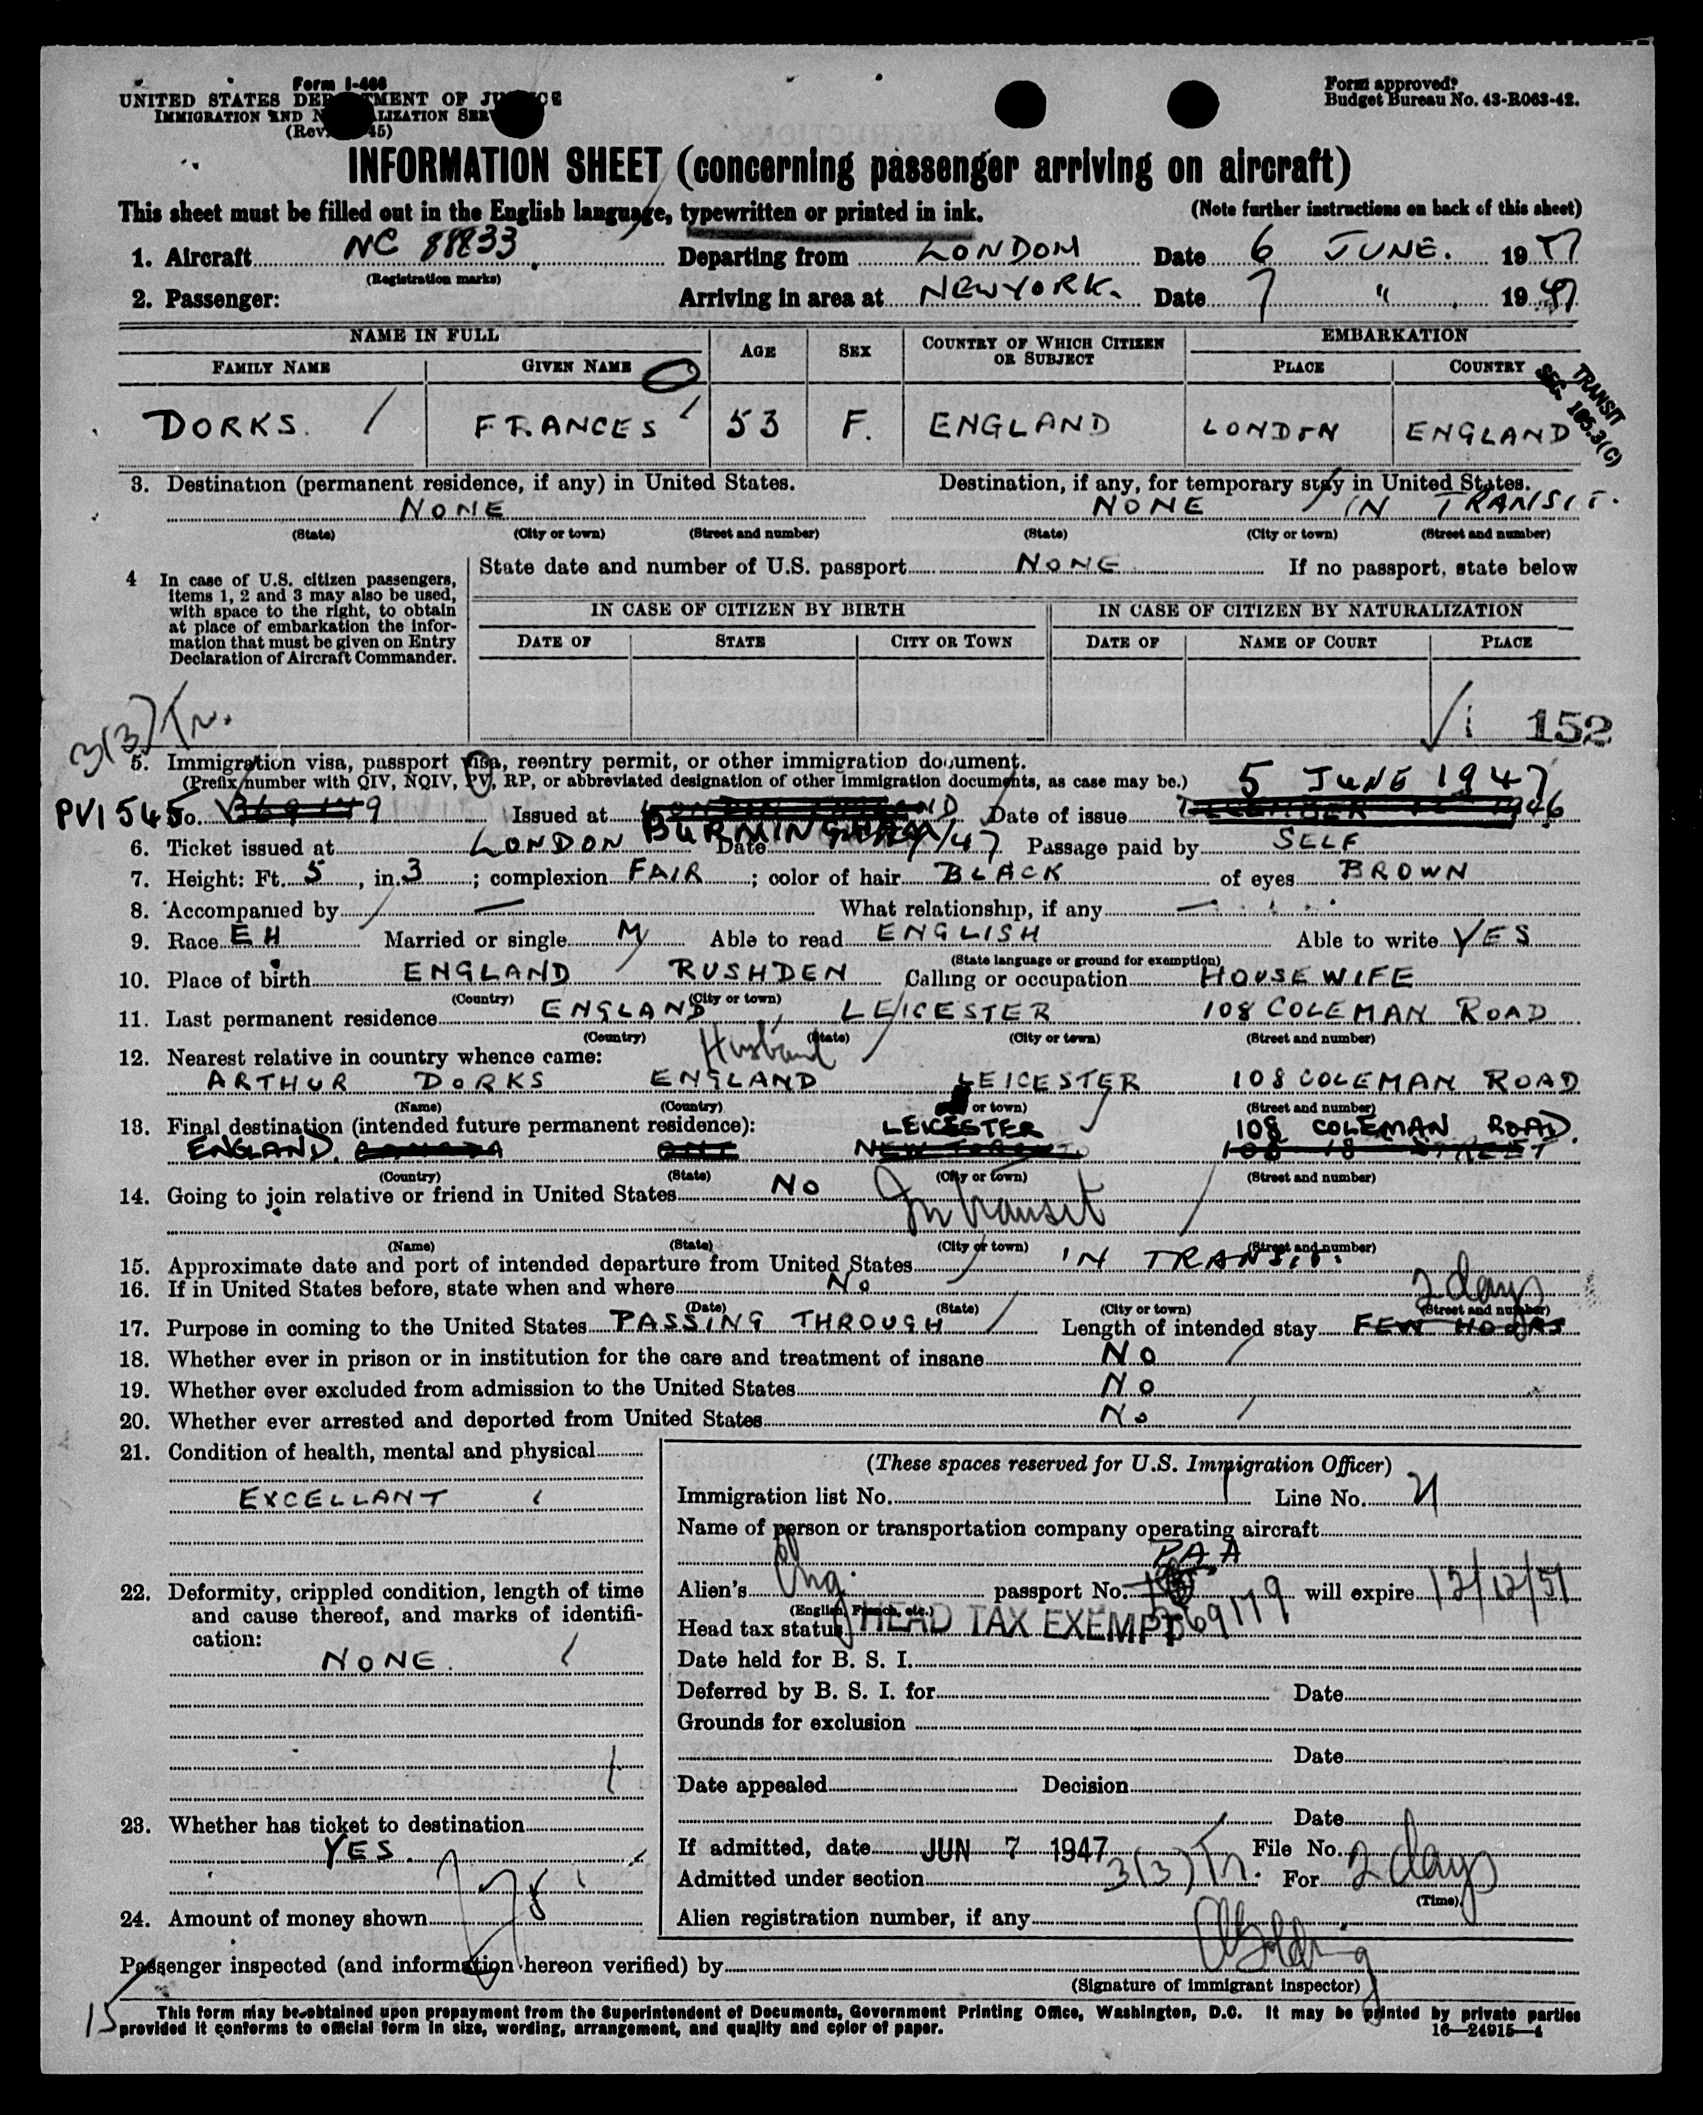 Form I-466
UNITED STATES DEPARTMENT OF JUSTICE
IMMIGRATION AND NATURALIZATION SER
(Rev. 45)
Form approved:
Budget Bureau No. 43-R063-42.
INFORMATION SHEET (concerning passenger arriving on aircraft)
This sheet must be filled out in the English language, typewritten or printed in ink. (Note further instructions on back of this sheet)
1. Aircraft NC 88833. Departing from LONDON Date 6 JUNE. 1947
(Registration marks)
2. Passenger: Arriving in area at NEW YORK. Date 7 " 1947
NAME IN FULL AGE SEX COUNTRY OF WHICH CITIZEN OR SUBJECT EMBARKATION
FAMILY NAME GIVEN NAME PLACE COUNTRY
TRANSIT
SEC. 165.3(C)
DORKS. FRANCES 53 F. ENGLAND LONDON ENGLAND
3. Destination (permanent residence, if any) in United States. Destination, if any, for temporary stay in United States.
NONE NONE IN TRANSIT.
(State) (City or town) (Street and number) (State) (City or town) (Street and number)
4 In case of U.S. citizen passengers, items 1, 2 and 3 may also be used, with space to the right, to obtain at place of embarkation the information that must be given on Entry Declaration of Aircraft Commander.
State date and number of U.S. passport NONE If no passport, state below
IN CASE OF CITIZEN BY BIRTH IN CASE OF CITIZEN BY NATURALIZATION
DATE OF STATE CITY OR TOWN DATE OF NAME OF COURT PLACE
3(3) Tr. 152
5. Immigration visa, passport visa, reentry permit, or other immigration document.
(Prefix number with QIV, NQIV, PV, RP, or abbreviated designation of other immigration documents, as case may be.) 5 JUNE 1947
PVI 545 No. Issued at Date of issue
6. Ticket issued at LONDON Date Passage paid by SELF
7. Height: Ft. 5, in. 3; complexion FAIR; color of hair BLACK of eyes BROWN
8. Accompanied by — What relationship, if any —
9. Race EH Married or single M Able to read ENGLISH Able to write YES
(State language or ground for exemption)
10. Place of birth ENGLAND RUSHDEN Calling or occupation HOUSEWIFE
(Country) (City or town)
11. Last permanent residence ENGLAND LEICESTER 108 COLEMAN ROAD
(Country) (State) (City or town) (Street and number)
12. Nearest relative in country whence came: Husband
ARTHUR DORKS ENGLAND LEICESTER 108 COLEMAN ROAD
(Name) (Country) or town) (Street and number)
13. Final destination (intended future permanent residence): LEICESTER 108 COLEMAN ROAD.
ENGLAND.
(Country) (State) (City or town) (Street and number)
14. Going to join relative or friend in United States NO In transit
(Name) (State) (City or town) (Street and number)
15. Approximate date and port of intended departure from United States IN TRANSIT.
16. If in United States before, state when and where No 2 days
(Date) (State) (City or town) (Street and number)
17. Purpose in coming to the United States PASSING THROUGH Length of intended stay FEW HOURS
18. Whether ever in prison or in institution for the care and treatment of insane NO
19. Whether ever excluded from admission to the United States NO
20. Whether ever arrested and deported from United States No
21. Condition of health, mental and physical
EXCELLANT
22. Deformity, crippled condition, length of time and cause thereof, and marks of identification:
NONE.
23. Whether has ticket to destination
YES.
24. Amount of money shown
(These spaces reserved for U.S. Immigration Officer)
Immigration list No. Line No.
Name of person or transportation company operating aircraft
PAA
Alien's Eng. passport No. 369179 will expire 12/12/51
(English, French, etc.)
Head tax status HEAD TAX EXEMPT
Date held for B. S. I.
Deferred by B. S. I. for Date
Grounds for exclusion
Date
Date appealed Decision
Date
If admitted, date JUN 7 1947 File No.
Admitted under section 3(3) Tr. For 2 days
(Time)
Alien registration number, if any
Passenger inspected (and information hereon verified) by
(Signature of immigrant inspector)
15
This form may be obtained upon prepayment from the Superintendent of Documents, Government Printing Office, Washington, D.C. It may be printed by private parties
provided it conforms to official form in size, wording, arrangement, and quality and color of paper. 16—24915—4